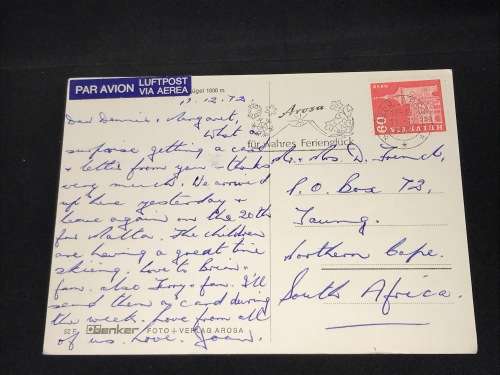 PAR AVION LUFTPOST
VIA AEREA
ügel 1800 m
11.12.72.
Dear Dennis + Margaret,
What a
surprise getting a card
+ letter from you - thanks
very much. We arrived
up here yesterday +
leave again on the 20th
for Malta. The children
are having a great time
skiing. Love to Brian +
fam. also Tony + fam. I'll
send them a card during
the week. Love from all
of us. Love. Joan.
Denker FOTO + VERLAG AROSA
Arosa
für wahres Ferienglück
60
HELVETIA
Mr. + Mrs. D. French,
P.O. Box 72,
Taung.
Northern Cape.
South Africa.